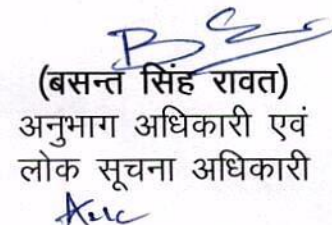 (बसन्त सिंह रावत)
अनुभाग अधिकारी एवं
लोक सूचना अधिकारी